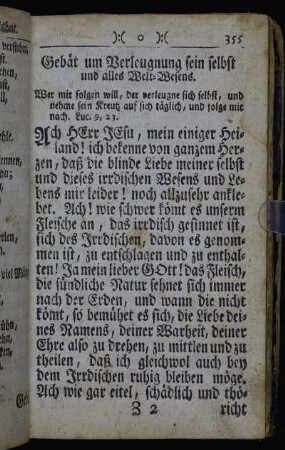 ):( o ):( 355
Gebät um Verleugnung sein selbst
und alles Welt-Wesens.
Wer mir folgen will, der verleugne sich selbst, und
nehme sein Kreutz auf sich täglich, und folge mir
nach. Luc. 9, 23.
Ach HErr JEsu, mein einiger Hei-
land! ich bekenne von ganzem Her-
zen, daß die blinde Liebe meiner selbst
und dieses irrdischen Wesens und Le-
bens mir leider! noch allzusehr ankle-
bet. Ach! wie schwer kömt es unserm
Fleische an, das irrdisch gesinnet ist,
sich des Irrdischen, davon es genom-
men ist, zu entschlagen und zu enthal-
ten! Ja mein lieber GOtt! das Fleisch,
die sündliche Natur sehnet sich immer
nach der Erden, und wann die nicht
kömt, so bemühet es sich, die Liebe dei-
nes Namens, deiner Warheit, deiner
Ehre also zu drehen, zu mittlen und zu
theilen, daß ich gleichwol auch bey
dem Irrdischen ruhig bleiben möge.
Ach wie gar eitel, schädlich und thö-
Z 2 richt